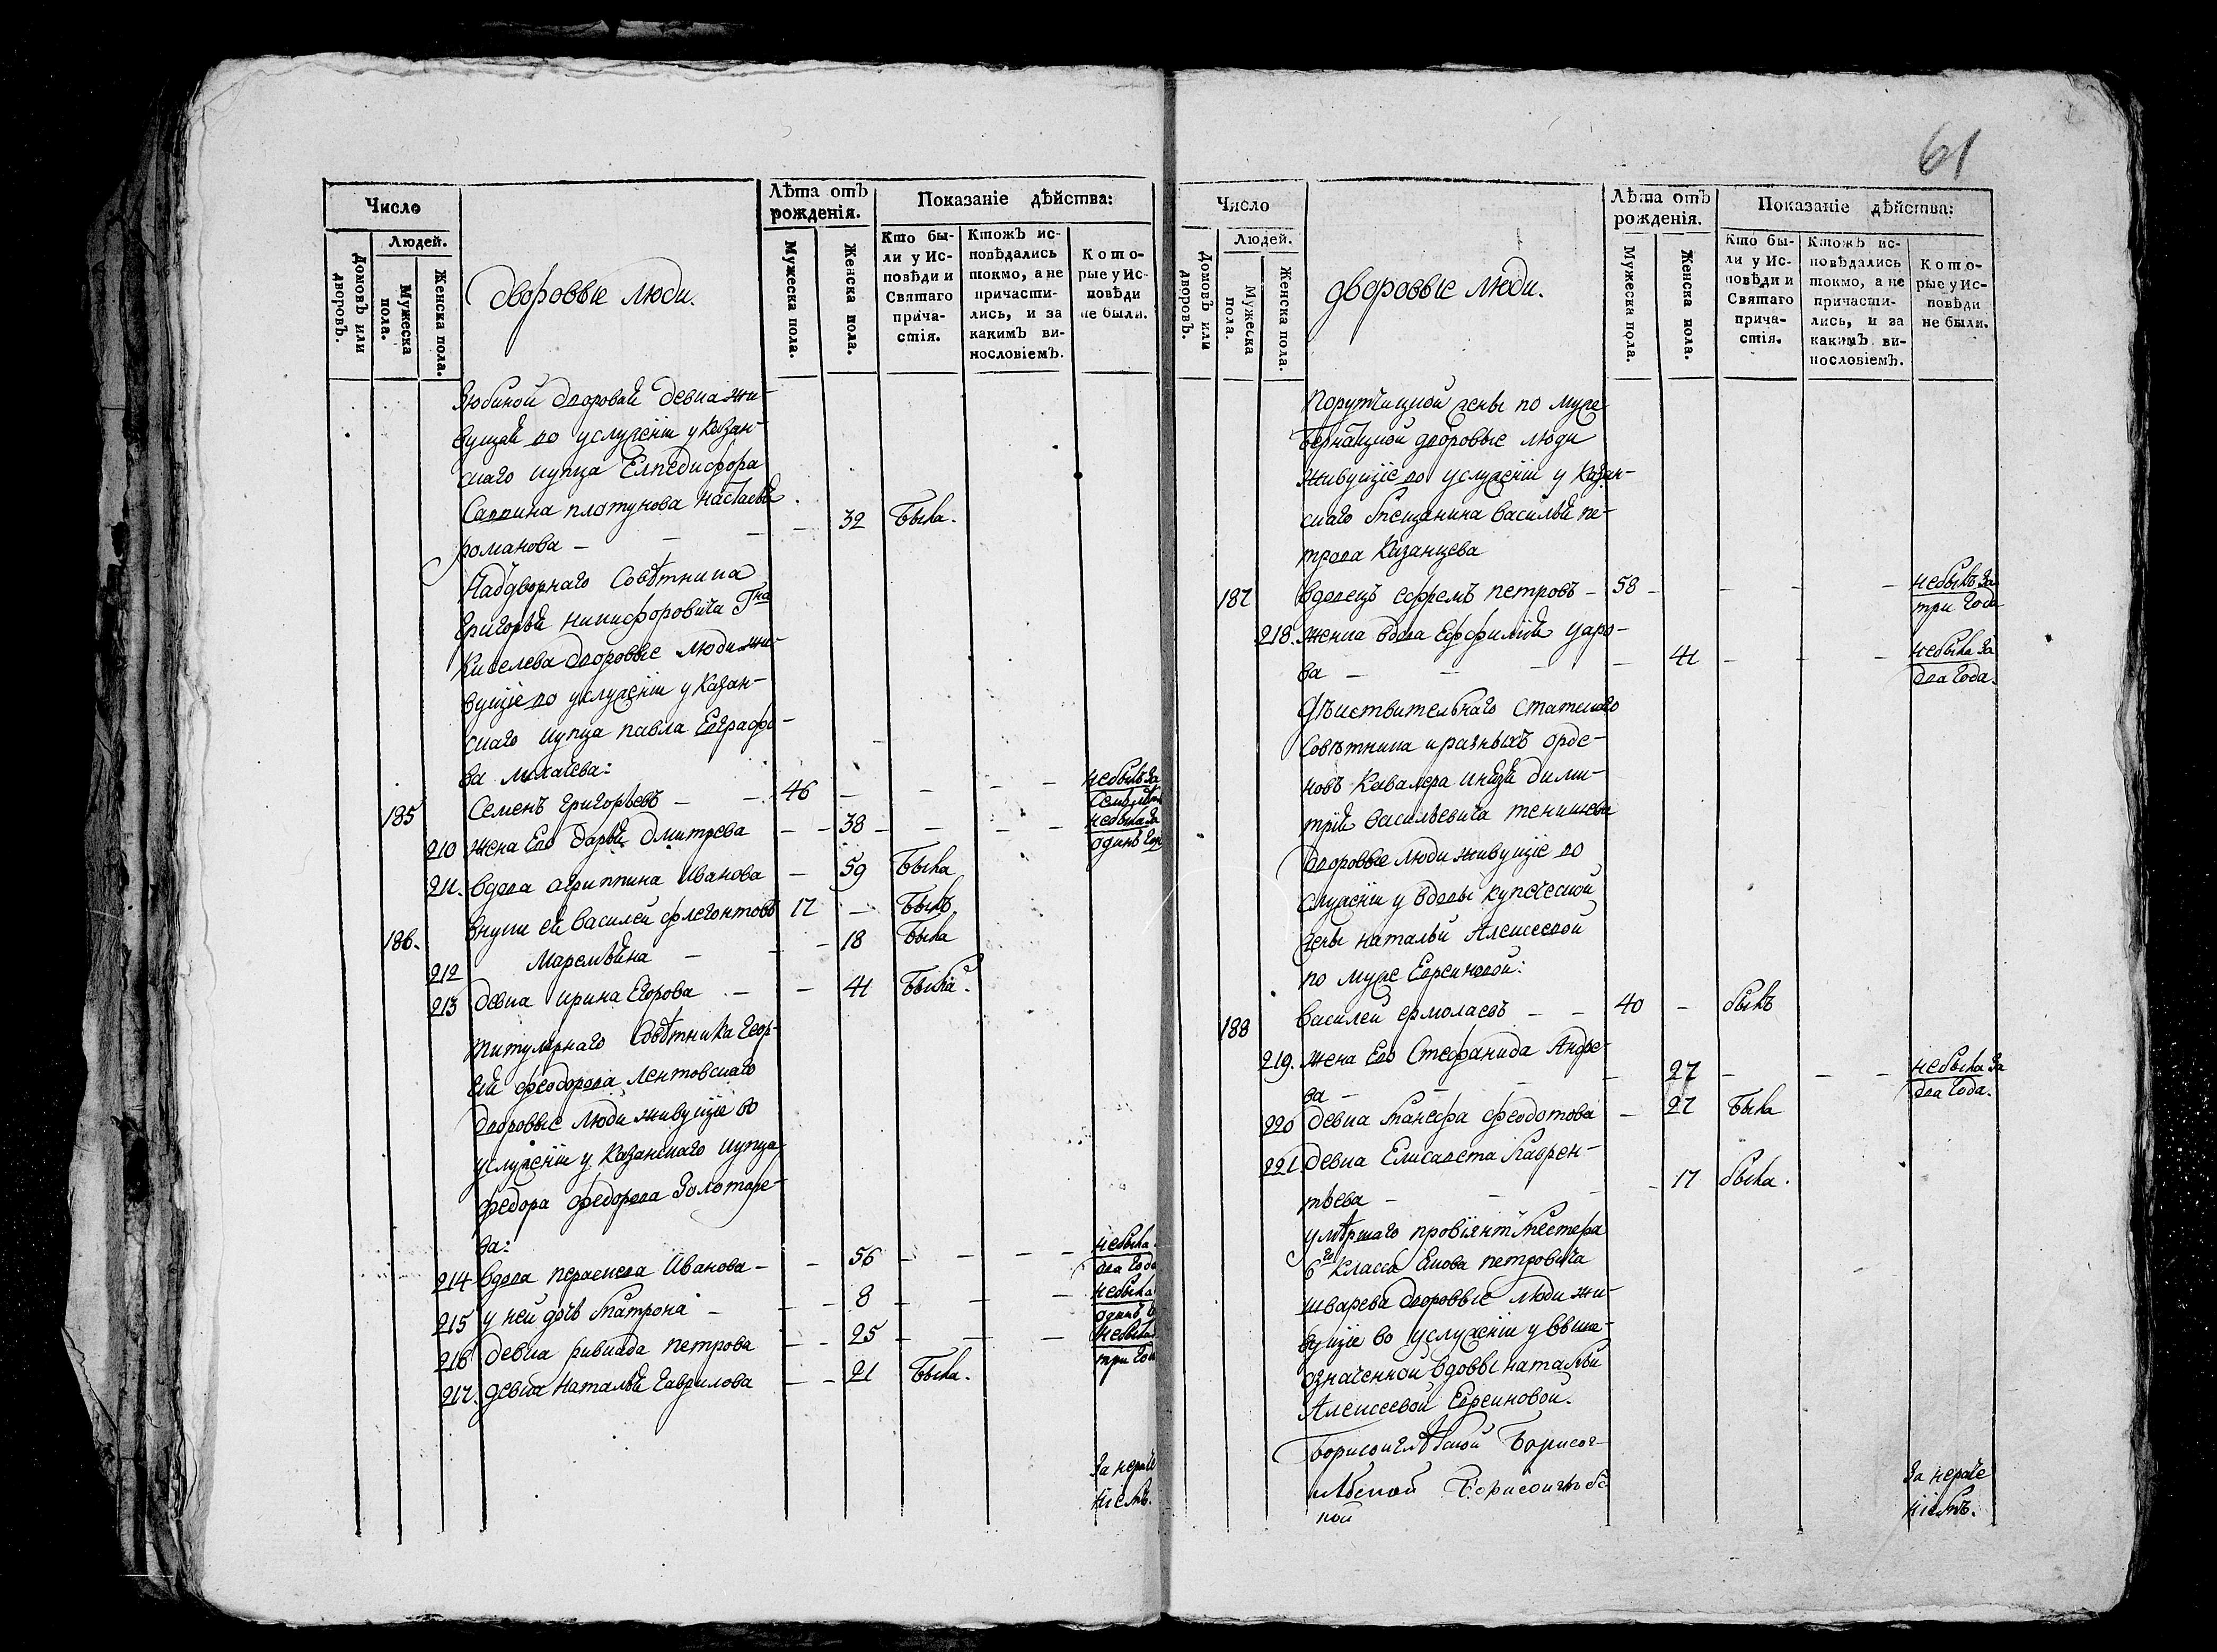 61
Число
Людей.
Домовъ или дворовъ.
Мужеска пола.
Женска пола.
дворовые люди.
Лѣта отъ рожденія.
Мужеска пола.
Женска пола.
Показаніе дѣйства:
Кто бы-
ли у Ис-
повѣди и
Святаго
прича-
стія.
Ктожъ ис-
повѣдались
токмо, а не
причасти-
лись, и за
какимъ ви-
нословіемъ.
Кото-
рые у Ис-
повѣди
не были.
Зюбиной дворовай девка жи-
вущай во услуженіи у Казан-
скаго купца Елпедифора
Саввина плотунова настасьй
романова — — — — 32 была.
Надворнаго Совѣтника
григорьй никифоровича Гна
Киселева дворовые люди жи-
вущіе во услуженіи у Казан-
скаго купца павла Евграфо-
ва михаева:
185 Семенъ григорьевъ — — 46 — — — — небылъ за
210 жена Его дарьй дмитрева — — 38 — — — — небыла за
одинъ годъ
211. вдова агриппина Иванова — 59 была
186. внуки ей василей флегонтовъ 17 — былъ
212 Маремьяна — — — 18 была
213 девка ирина Егорова — — 41 была.
титулярнаго Совѣтника Геор-
гій феодорова лентовскаго
дворовые люди живущіе во
услуженіи у Казанскаго купца
федора федорова Золотаре-
ва:
214 вдова праскева Иванова — — 56 — — — — небыла
два года
215 у ней дочь Матрона — — — 8 — — — небыла
одинъ
216 девка ривиада петрова — — 25 — — — небыла
три года
217. девка натальй гаврилова — — 21 была.
За нераче
ніемъ.
Число
Людей.
Домовъ или дворовъ.
Мужеска пола.
Женска пола.
дворовые люди.
Лѣта отъ рожденія.
Мужеска пола.
Женска пола.
Показаніе дѣйства:
Кто бы-
ли у Ис-
повѣди и
Святаго
прича-
стія.
Ктожъ ис-
повѣдались
токмо, а не
причасти-
лись, и за
какимъ ви-
нословіемъ.
Кото-
рые у Ис-
повѣди
не были.
Порутчицкой жены по муже
дворовые люди
живущіе во услуженіи у Казан-
скаго Мещанина василья пе-
трова Казанцева
187 вдовецъ ефремъ петровъ — 58 — — — — небылъ за
три года
218. женка вдова Ефимій уаро-
ва — — — 41 — — — небыла за
два года.
дѣиствительнаго статскаго
совѣтника и разныхъ орде-
новъ Кавалера князй дими-
трій васильевича тенишева
дворовые люди живущіе во
служеніи у вдовы купеческой
жены натальи Алексеевой
по муже Евреиновой:
188 василеи ермолаевъ — — 40 — былъ
219. жена Его Стефанида Андре-
ва — — — — 27 — — — небыла за
два года.
220 девка Манефа феодотова — 27 была
221. девка Елисавета Лаврен-
тьева — — — — 17 была.
умѣршаго провіянтмейстера
6го класса Якова петровича
шварева дворовые люди жи-
вущіе во услуженіи у выше-
означенной вдовы натальи
Алексеевой Евреиновой.
Борисоглѣбской Борисог-
лѣбской Борисоглѣбс
кой
За нераче
ніемъ.